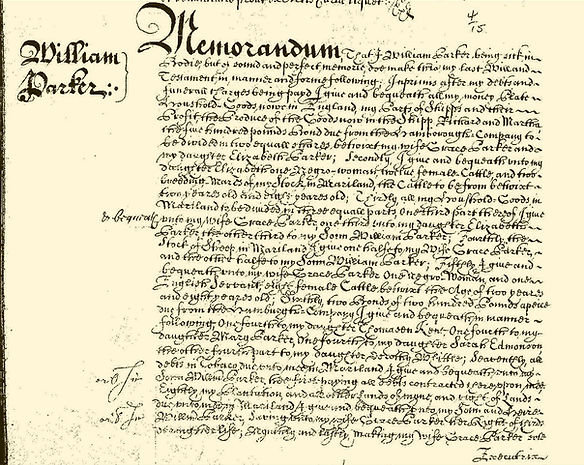 William Parker:
Memorandum That I William Parker being sick in
Bodie, but of sound and perfect memorie doe make this my last Will and
Testament in manner and forme following: Inprimis after my debts and
funerall Charges being payd I give and bequeath all my money, Plate
Houshold Goods now in England, my Parts of Shipps and their
Profitt, the Produce of the Goods now in the Shipp Richard and Martha
the five hundred pounds Bond due from the Company to
be divided in two equall shares, betwixt my wife Grace Parker and
my daughter Elizabeth Parker; Secondly, I give and bequeath unto my
daughter Elizabeth one Negro-woman, twelve female Cattle, and two
breeding Mares of my Stock in Mariland, the Cattle to be from betwixt
two years old and eight years old; Thirdly all my Houshold-Goods in
Mariland to be divided in three equall parts, one third part thereof I give
& bequeath
unto my Wife Grace Parker, one third unto my daughter Elizabeth
Parker, the other third to my Sonn William Parker; Fourthly the
Stock of Sheep in Mariland I give one halfe to my Wife Grace Parker,
and the other halfe to my Sonn William Parker; Fifthly I give and
bequeath unto my wife Grace Parker One Negro-Woman, and one
English Servant, eight female Cattle betwixt the Age of two years
and eight years old; Sixthly two Bonds of two hundred Pounds apiece
due from the Company I give and bequeath in manner
following, One fourth to my daughter Thomasen Kent, One fourth to my
daughter Mary Parker, One fourth to my daughter Sarah Edmondson
the other fourth part to my daughter Dorothy; Seaventhly all
debts in Tobaco due unto mee in Mariland I give and bequeath unto my
Sonn William Parker, hee first paying all debts contracted there upon mee
Eightly, my Plantation and all other Lands of myne, and right of Lands
due unto mee in Mariland I give and bequeath unto my Sonn and Heire
William Parker, Saving unto my wife Grace Parker her Right of
during her life; and lastly, making my Wife Grace Parker sole
Executrix